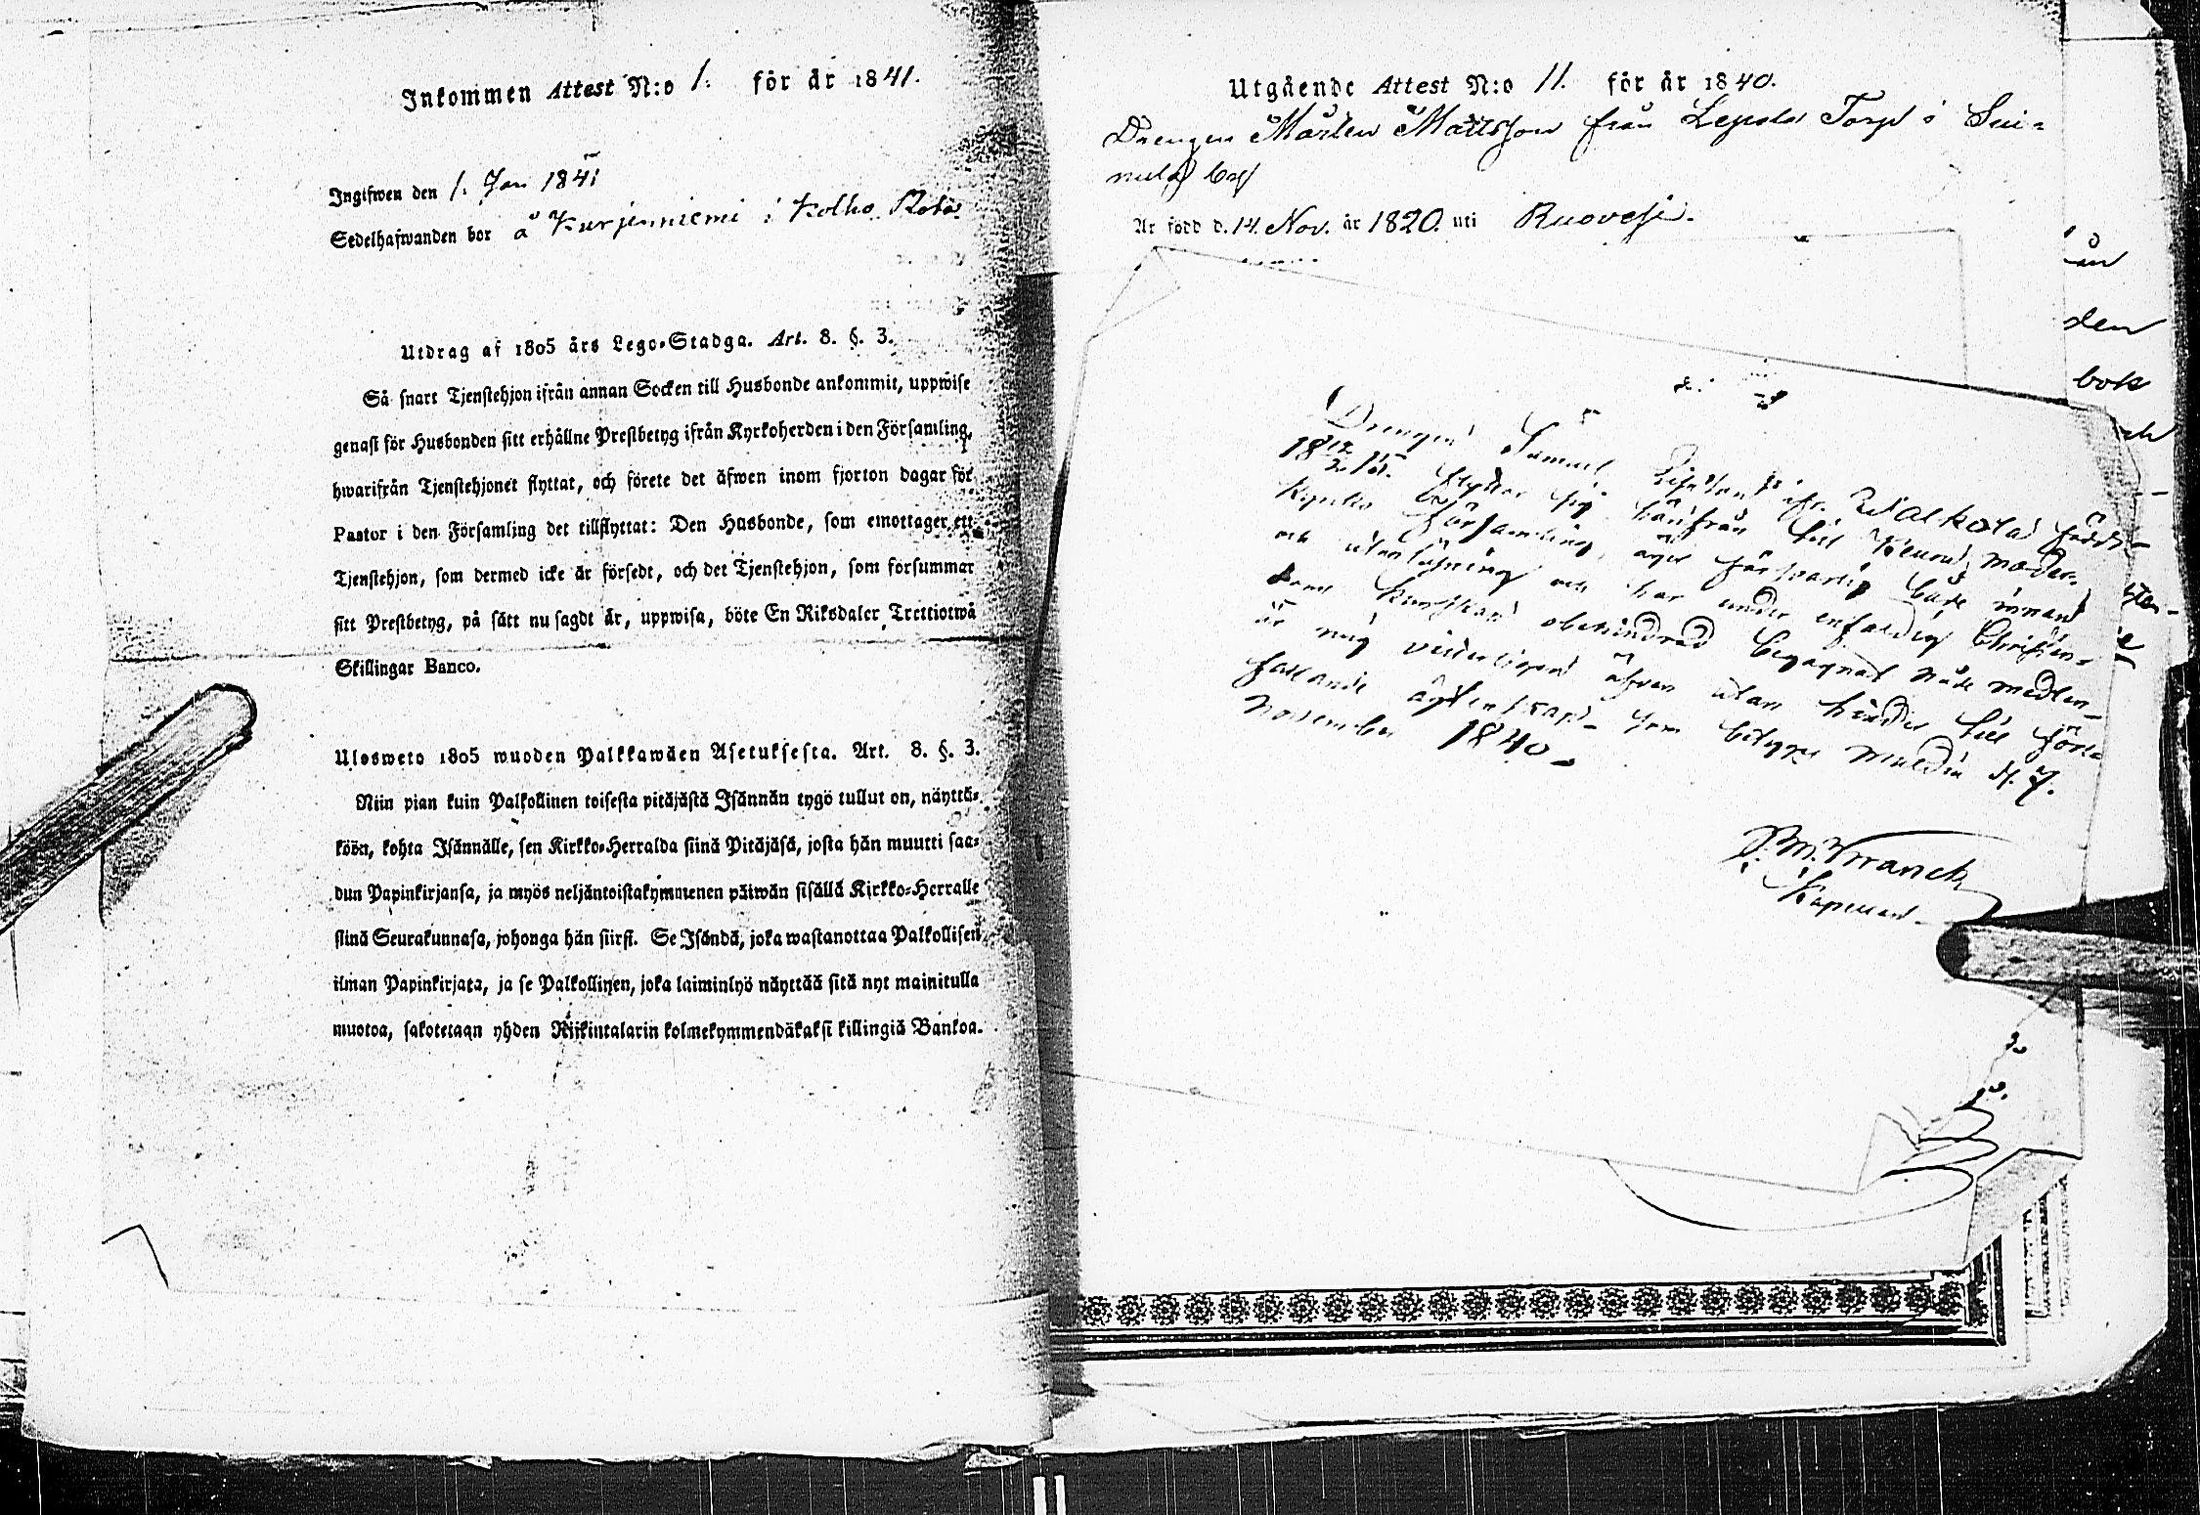 Inkommen Attest N:o 1. för år 1841.
Ingifwen den 1. Jan 1841
Sedelhafwanden bor å Kurjenniemi i Kolho Rote.
Utdrag af 1805 års Lego-Stadga. Art. 8. §. 3.
Så snart Tjenstehjon ifrån annan Socken till Husbonde ankommit, uppwise
genast för Husbonden sitt erhållne Prestbetyg ifrån Kyrkoherden i den Församling,
hwarifrån Tjenstehjonet flyttat, och förete det äfwen inom fjorton dagar för
Pastor i den Församling det tillflyttat: Den Husbonde, som emottager ett
Tjenstehjon, som dermed icke är försedt, och det Tjenstehjon, som försummar
sitt Prestbetyg, på sätt nu sagdt är, uppwisa, böte En Riksdaler Trettiotwå
Skillingar Banco.
Ulosweto 1805 wuoden Palkkawäen Asetuksesta. Art. 8. §. 3.
Niin pian kuin Palkollinen toisesta pitäjästä Isännän tygö tullut on, näyttä-
köön, kohta Isännälle, sen Kirkko-Herralda siinä Pitäjäsä, josta hän muutti saa-
dun Papinkirjansa, ja myös neljäntoistakymmenen päiwän sisällä Kirkko-Herralle
siinä Seurakunnasa, johonga hän siirsi. Se Isändä, joka wastanottaa Palkollisen
ilman Papinkirjata, ja se Palkollinen, joka laiminlyö näyttää sitä nyt mainitulla
muotoa, sakotetaan yhden Riikintalarin kolmekymmendäkaksi killingiä Bankoa.
Utgående Attest N:o 11. för år 1840.
Drengen Mårten Mattsson från Lepola Torp i Sui-
nula by
Är född d. 14. Nov. år 1820. uti Ruovesi.
Drengen Samuel född
18 flyttar sig härifrån till Keuru moder-
Kyrko Församling, äger försvarlig både innan
och utanläsning och har under enfaldig Christen-
doms kunskap obehindrad begagnat nåde medlen
är mig veterligen äfven utan hinder till före
fallande ägtenskap som betygar Multia d. 7.
November 1840
Kapellan
ån
den
bok